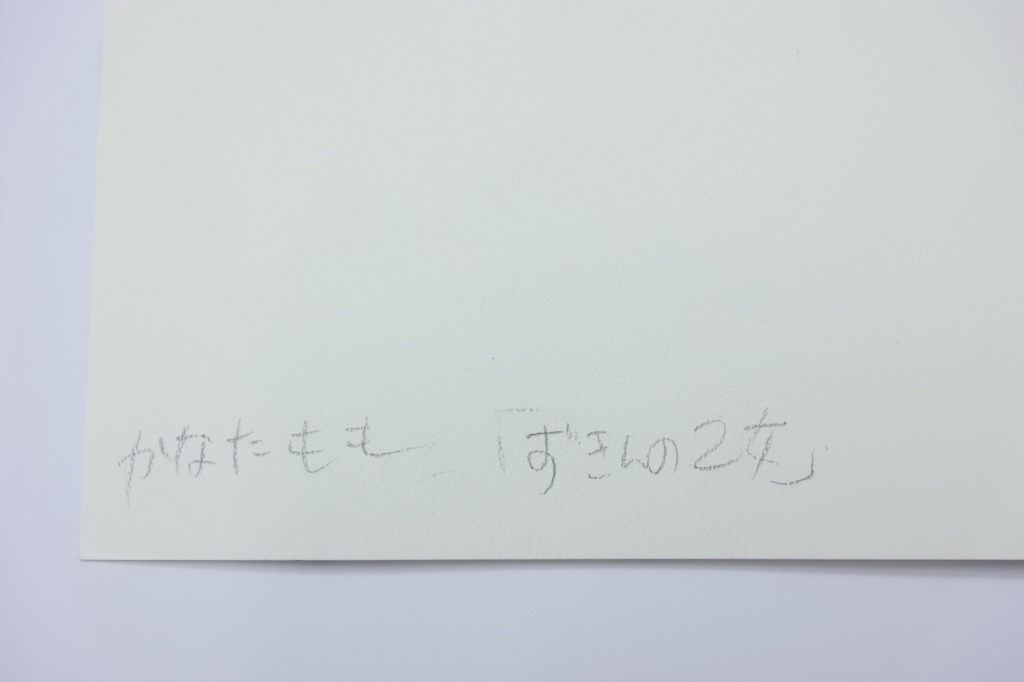 かなたもも 「ずきんの乙女」